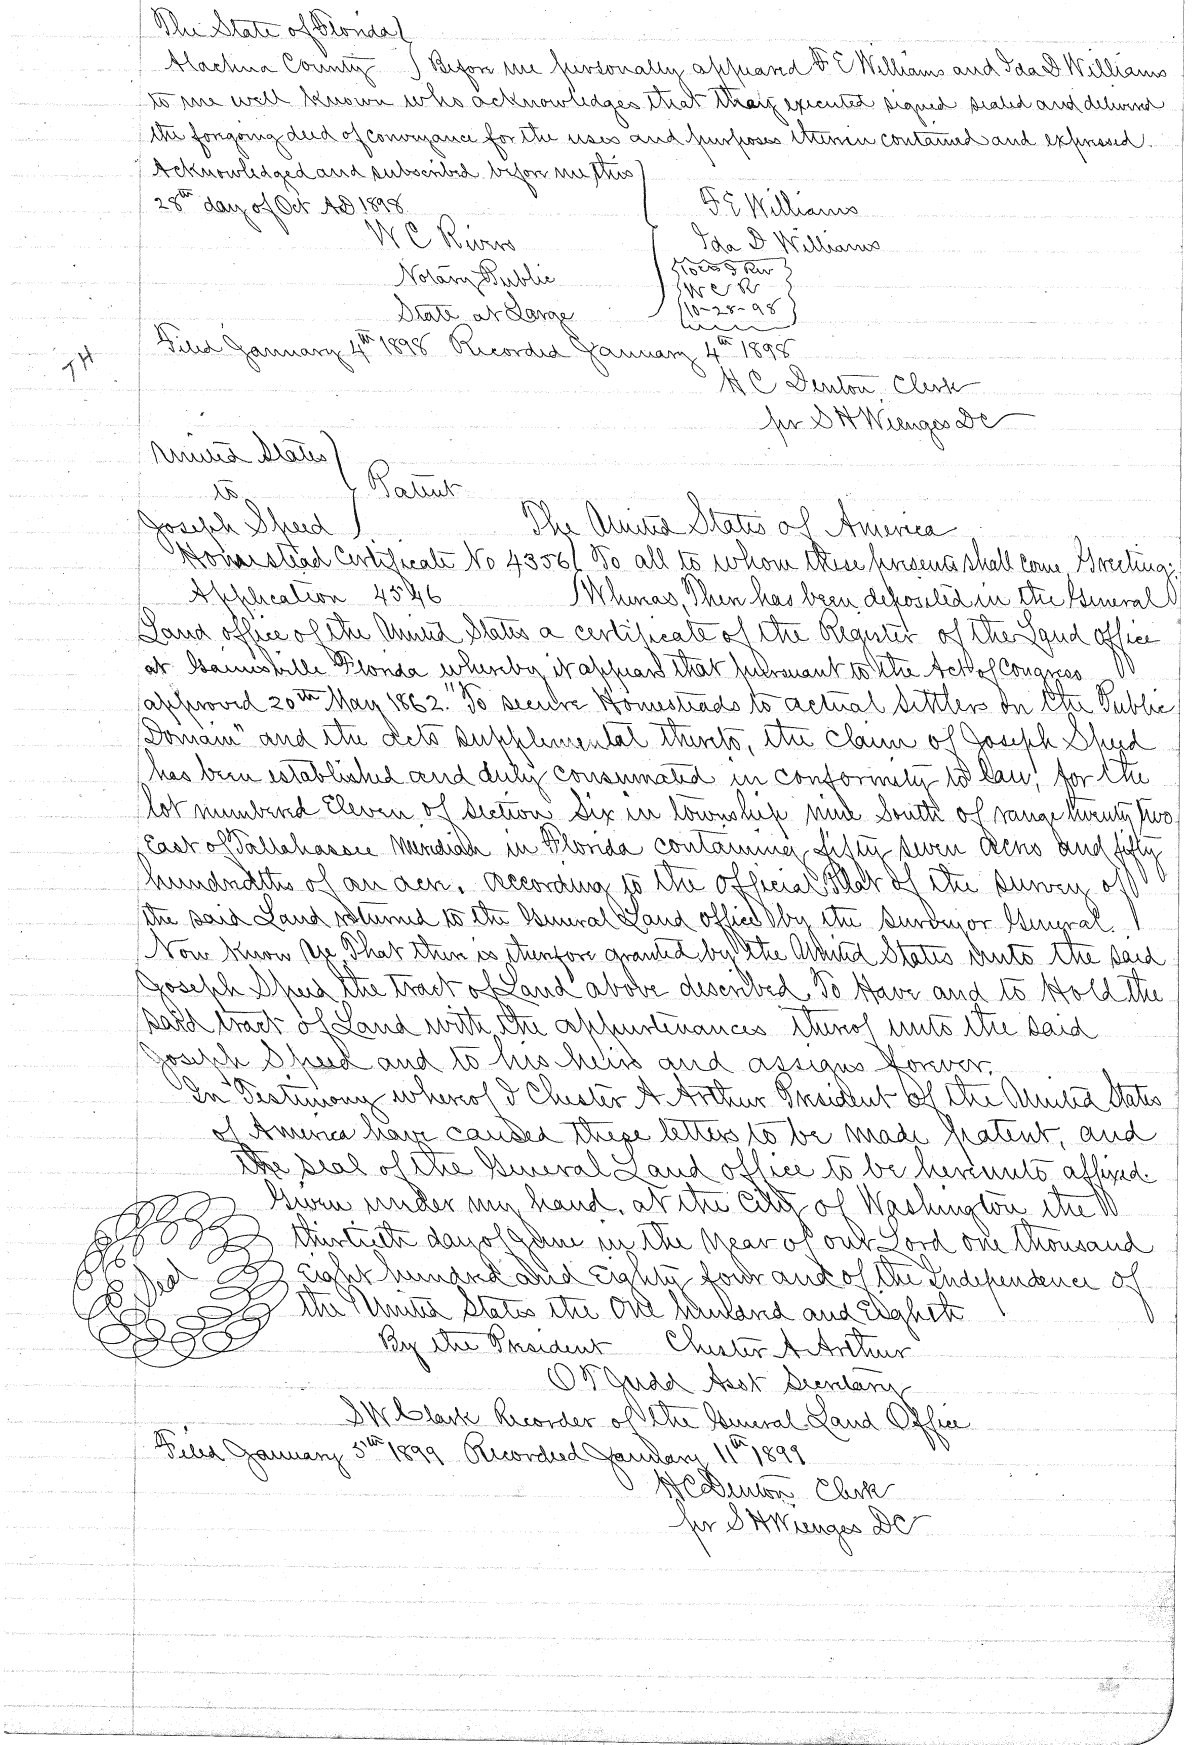 The State of Florida
Alachua County } Before me personally appeared F E Williams and Ida D Williams
to me well known who acknowledges that they executed signed sealed and delivered
the forgoing deed of conveyance for the uses and purposes therein contained and expressed.
Acknowledged and subscribed before me, this
28th day of Oct AD 1898
F E Williams
W C Rivers
Ida D Williams
Notary Public
W C R
State at Large
10-28-98
Filed January 4th 1898 Recorded January 4th 1898
TH
H C Denton, Clerk
pr S H Wienges DC
United States
to } Patent
Joseph Speed
The United States of America
Homestead Certificate No 4356 } To all to whom these presents shall come, Greeting:
Application 4546 } Whereas, There has been deposited in the General
Land office of the United States a certificate of the Register of the Land office
at Gainesville Florida whereby it appears that pursuant to the Act of Congress
approved 20th May 1862. "To secure Homesteads to actual settlers on the Public
Domain" and the acts supplemental thereto, the claim of Joseph Speed
has been established and duly consumated in conformity to law, for the
lot numbered Eleven of section six in township nine South of range twenty two
East of Tallahassee Meridian in Florida containing fifty seven acres and fifty
hundredths of an acre, according to the official Plat of the survey of
the said Land returned to the General Land office by the surveyor General.
Now know ye, That there is therefore granted by the United States unto the said
Joseph Speed the tract of Land above described, To Have and to Hold the
said tract of Land with the appurtenances thereof unto the said
Joseph Speed and to his heirs and assigns forever.
In Testimony whereof I Chester A. Arthur President of the United States
of America have caused these letters to be made patent, and
the seal of the General Land office to be hereunto affixed.
Given under my hand, at the City of Washington the
thirtieth day of June in the Year of our Lord one thousand
Eight hundred and Eighty four and of the Independence of
Seal
the United States the One hundred and Eighth
By the President Chester A Arthur
O F Judd Asst Secretary
S W Clark Recorder of the General Land Office
Filed January 5th 1899 Recorded January 11th 1899
H C Denton, Clerk
pr S H Wienges DC